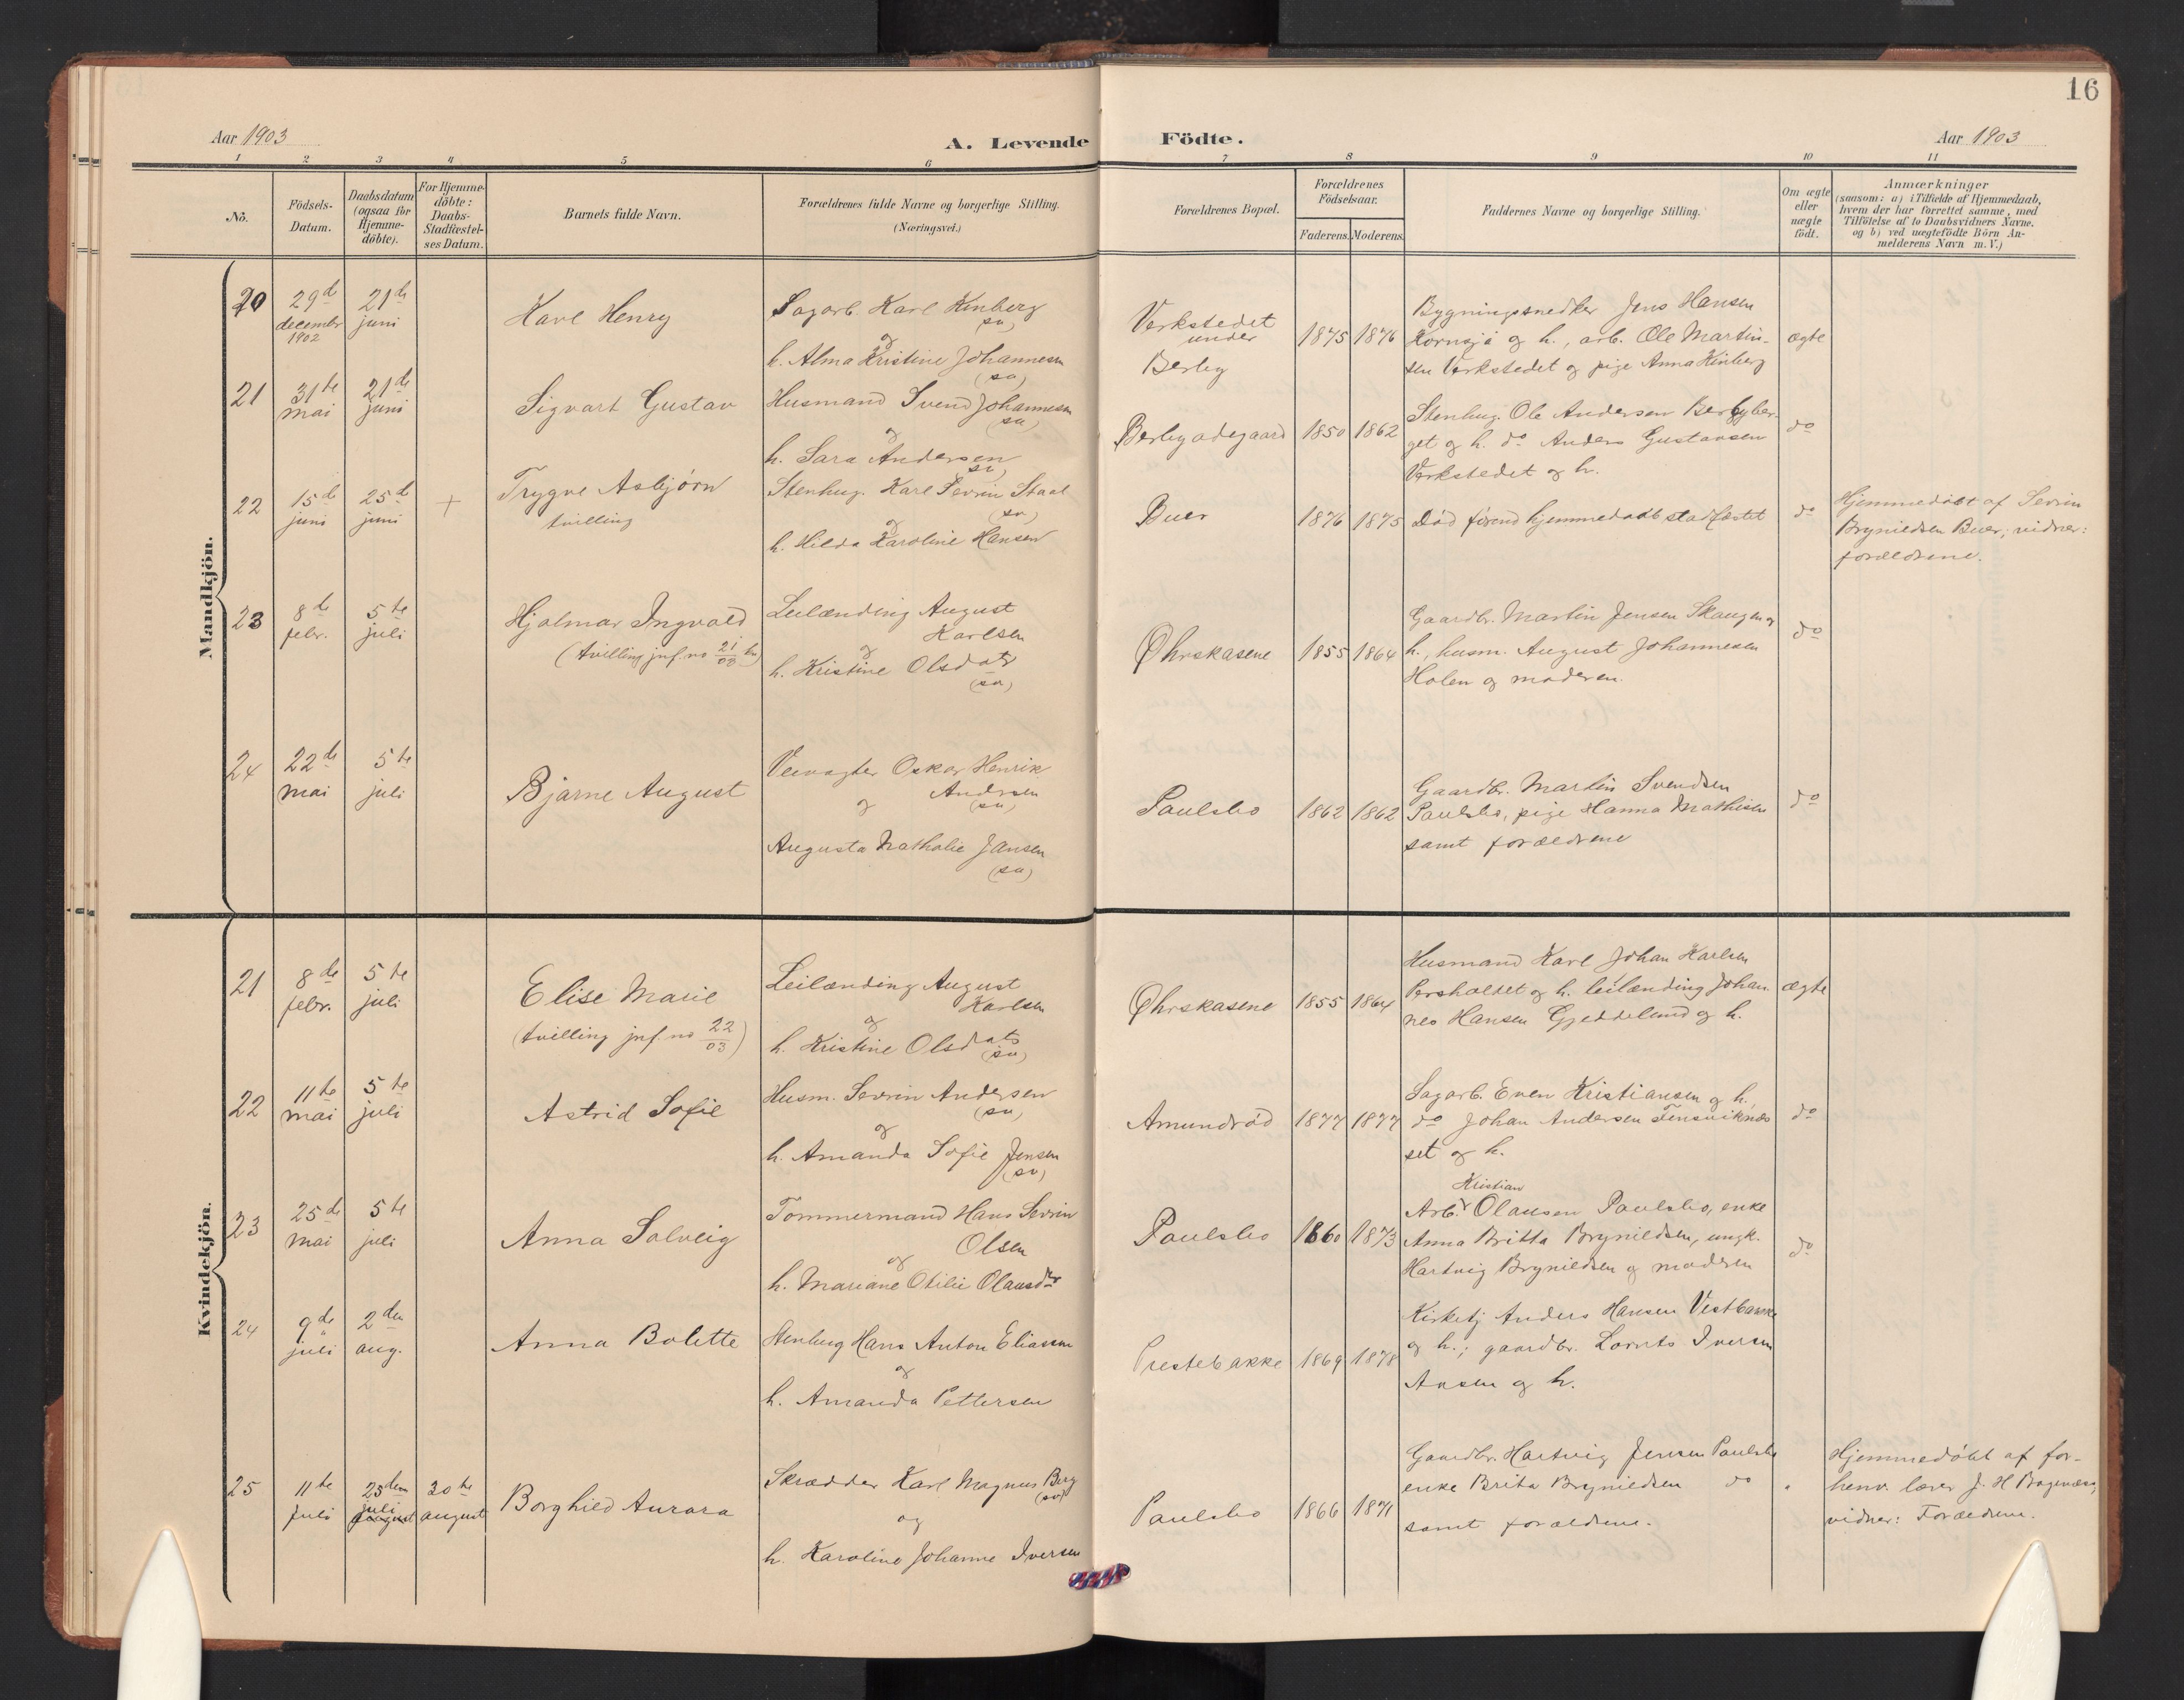 16
Aar 1903
A. Levende Födte.
Aar 1903
1 2 3 4 5 6 7 8 9 10 11
No.
Födsels-
Datum.
Daabsdatum
(ogsaa for
Hjemme-
döbte).
For Hjemme-
döbte:
Daabs-
Stadfæstel-
ses Datum.
Barnets fulde Navn.
Forældrenes fulde Navne og borgerlige Stilling.
(Næringsvei.)
Forældrenes Bopæl.
Forældrenes
Födselsaar.
Faderens. Moderens.
Faddernes Navne og borgerlige Stilling.
Om ægte
eller
uægte
födt.
Anmærkninger
(saasom: a) i Tilfælde af Hjemmedaab,
hvem der har forrettet samme, med
Tilföielse af to Daabsvidners Navne.
og b) ved uægtefödte Börn An-
melderens Navn m.V.)
Mandkjön.
20
29de
decembr
1902
21de
juni
Karl Henry
Sagarb. Karl Kinberg
(sv)
og
h. Alma Kristine Johannesen
(sv)
Verkstedet
under
Berby
1875 1876
Bygningssnedker Jens Hansen
Kornsjø og h., arb. Ole Martin-
sen Verkstedet og pige Anna Kinberg
ægte
21
31te
mai
21de
juni
Sigvart Gustav
Husmand Svend Johannesen
(sv)
og
h. Sara Andersen
(sv)
Berbyødegaard
1850 1862
Stenhug. Ole Andersen Berbyber-
get og h. do Anders Gustavsen
Verkstedet og h.
do
22
15de
juni
25de
juni
+
Trygve Asbjørn
tvilling
Stenhug. Karl Severin Staal
(sv)
og
h. Hilda Karoline Hansen
Buer
1876 1875
Død førend hjemmedaab stadfæstet
do
Hjemmedøbt af Severin
Brynildsen Buer, vidner:
forældrene.
23
8de
febr.
5te
juli
Hjalmar Ingvald
(tvilling jnf. no 21/03 kv)
Leilænding August
Karlsen
og
h. Kristine Olsdatr
(sv)
Øhrskasene
1855 1864
Gaardbr. Martin Jensen Skaugen og
h., husm. August Johannesen
Holen og moderen.
do
24
22de
mai
5te
juli
Bjarne August
Veivogter Oskar Henrik
Andersen
(sv)
og
Augusta Nathalie Jansen
(sv)
Paulsbo
1862 1862
Gaardbr. Martin Svendsen
Paulsbo, pige Hanna Mathisen
samt forældrene
do
Kvindekjön.
21
8de
febr.
5te
juli
Elise Marie
(tvilling jnf. no 22/03)
Leilænding August
Karlsen
og
h. Kristine Olsdatr
(sv)
Øhrskasene
1855 1864
Husmand Karl Johan Karlsen
Persholdet og h. leilænding Johan-
nes Hansen Gjeddelund og h.
ægte
22
11te
mai
5te
juli
Astrid Sofie
Husm. Severin Andersen
(sv)
og
h. Amanda Sofie Jensen
(sv)
Amundrød
1877 1877
Sagarb. Even Kristiansen og h.,
do Johan Andersen
set og h.
do
23
25de
mai
5te
juli
Anna Solveig
Tømmermand Hans Severin
Olsen
og
h. Mariane Otilie Olausdtr
Paulsbo
1860 1873
Kristian
Arb. Olausen Paulsbo, enke
Anna Britta Brynildsen, ungk.
Hartvig Brynildsen og modren
do
24
9de
juli
2den
aug.
Anna Bolette
Stenhug Hans Anton Eliassen
og
h. Amanda Pettersen
Prestebakke
1869 1878
Kirketj Anders Hansen Vestbakke
og h.; gaardbr. Lorents Iversen
Aasen og h.
25
11te
Juli
25dem
juli
august
30te
august
Borghild Aurora
Skrædder Karl Magnus Berg
(sv)
og
h. Karoline Johanne Iversen
Paulsbo
1866 1871
Gaardbr. Hartvig Jensen Paulsbo
enke Brita Brynildsen do
samt forældrene.
"
Hjemmedøbt af for-
henv. lærer J. H.
vidner: Forældrene.